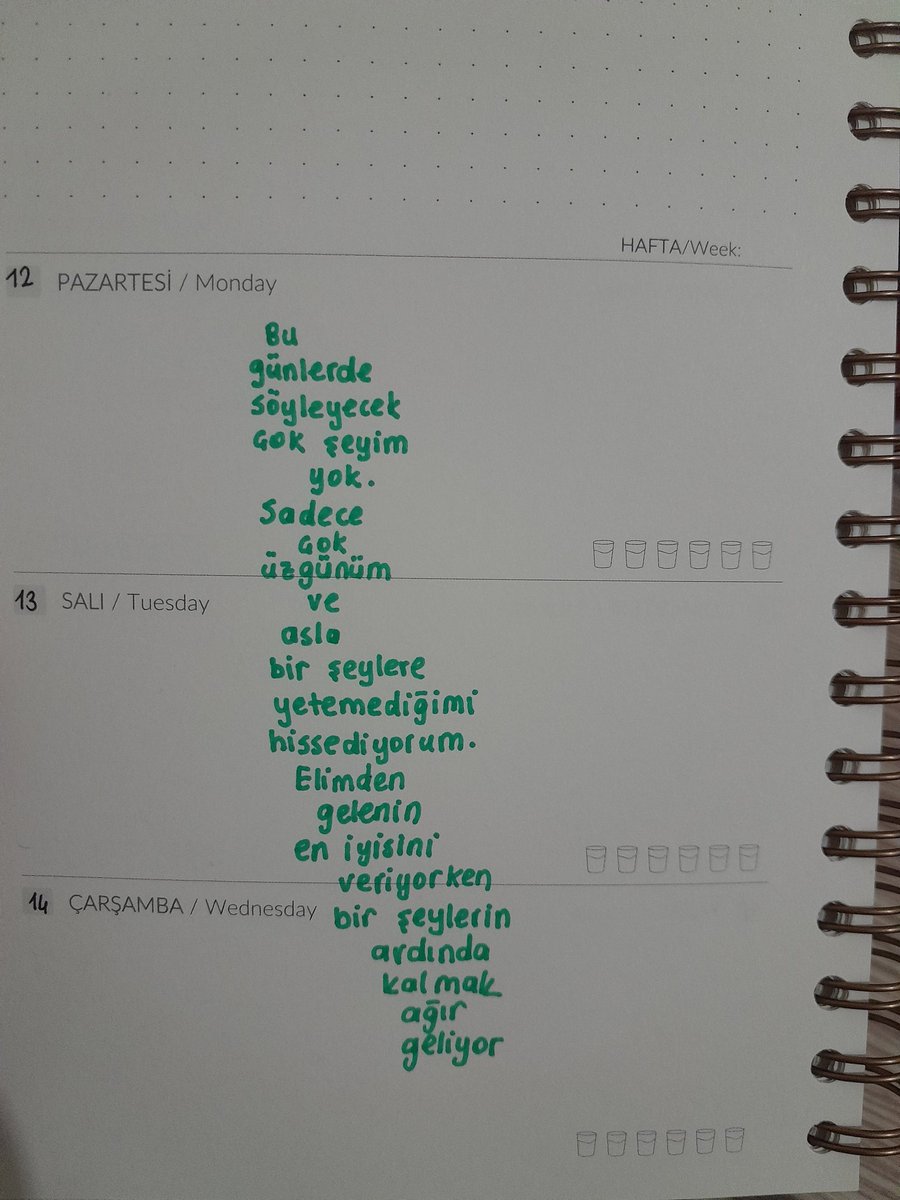 HAFTA/Week:
12 PAZARTESİ / Monday
Bu
günlerde
söyleyecek
çok şeyim
yok.
Sadece
çok
üzgünüm
13 SALI / Tuesday
ve
asla
bir şeylere
yetemediğimi
hissediyorum.
Elimden
gelenin
en iyisini
veriyorken
14 ÇARŞAMBA / Wednesday
bir şeylerin
ardında
kalmak
ağır
geliyor